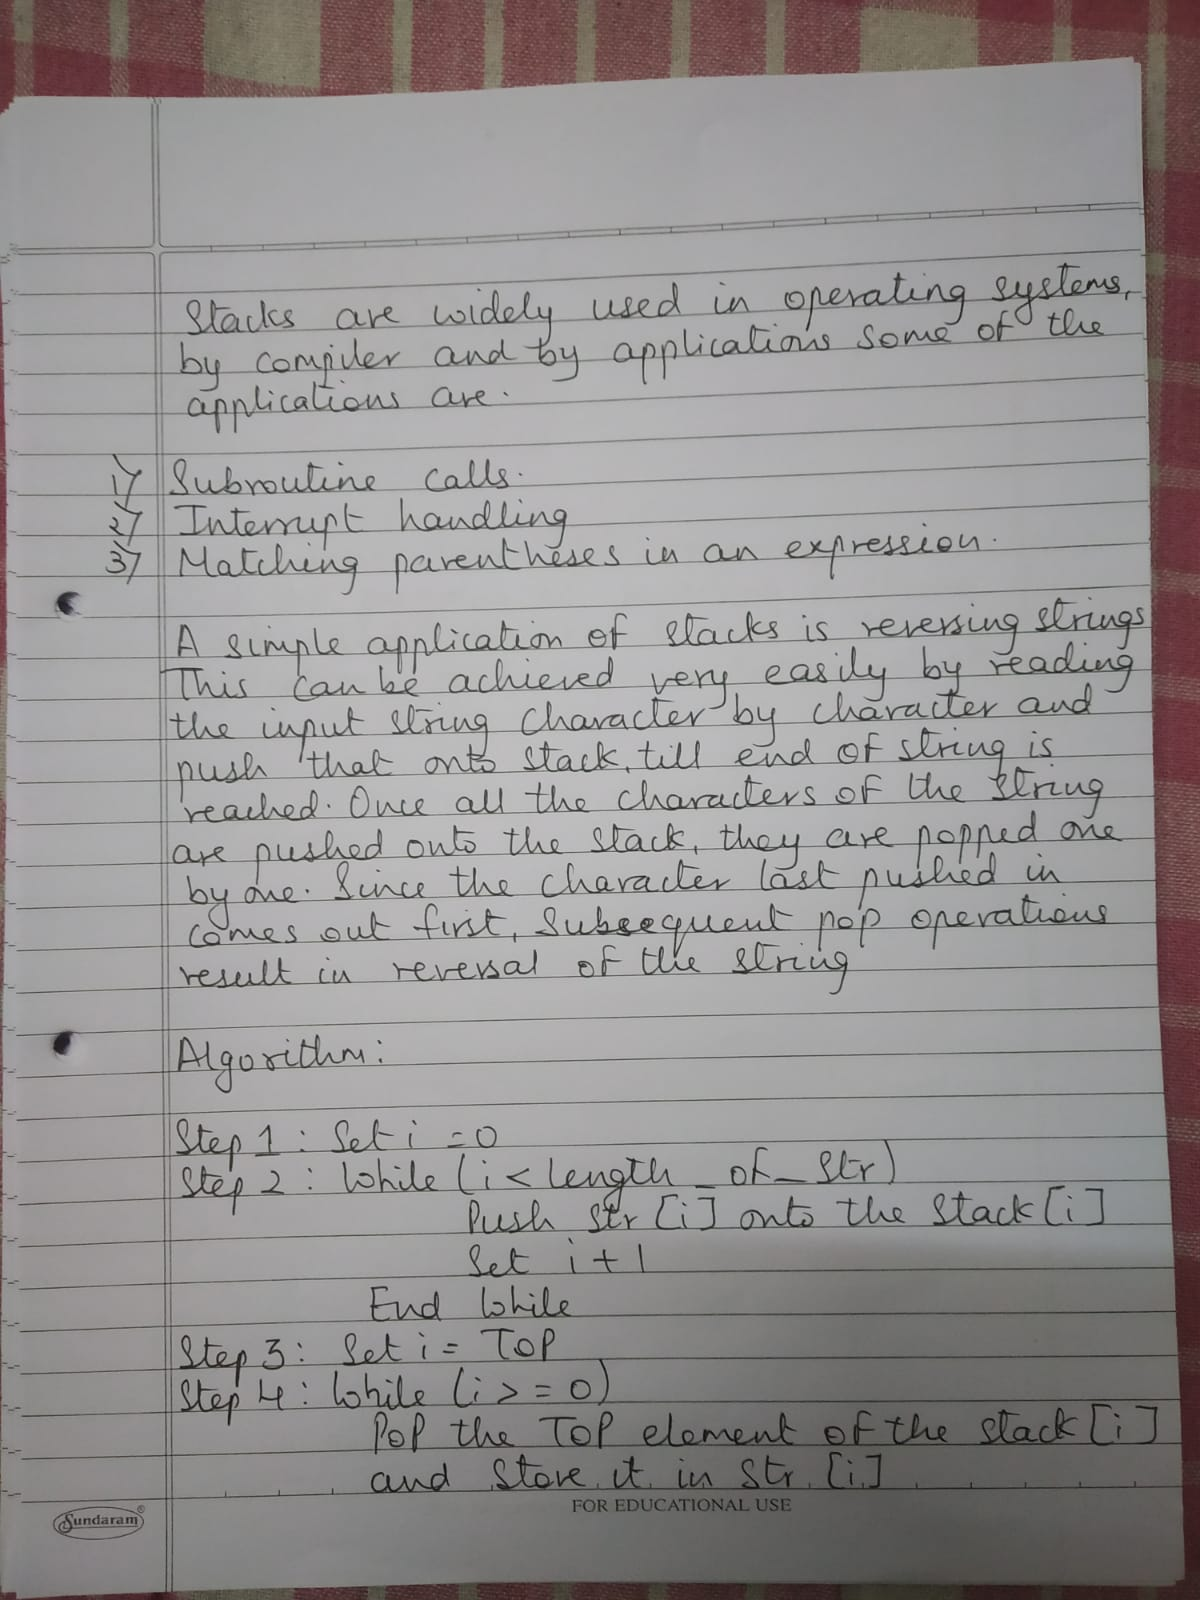 Stacks are widely used in operating systems,
by compiler and by applications some of the
applications are.
1) Subroutine calls.
2) Interrupt handling
3) Matching parentheses in an expression.
A simple application of stacks is reversing strings
This can be achieved very easily by reading
the input string character by character and
push that onto stack, till end of string is
reached. Once all the characters of the string
are pushed onto the stack, they are popped one
by one. Since the character last pushed in
comes out first, Subsequent pop operations
result in reversal of the string
Algorithm:
Step 1: Set i = 0
Step 2: While (i < length_of_str)
Push str [i] onto the stack [i]
Set i + 1
End While
Step 3: Set i = TOP
Step 4: While (i >= 0)
POP the TOP element of the stack [i]
and store it in str [i]
Sundaram®
FOR EDUCATIONAL USE